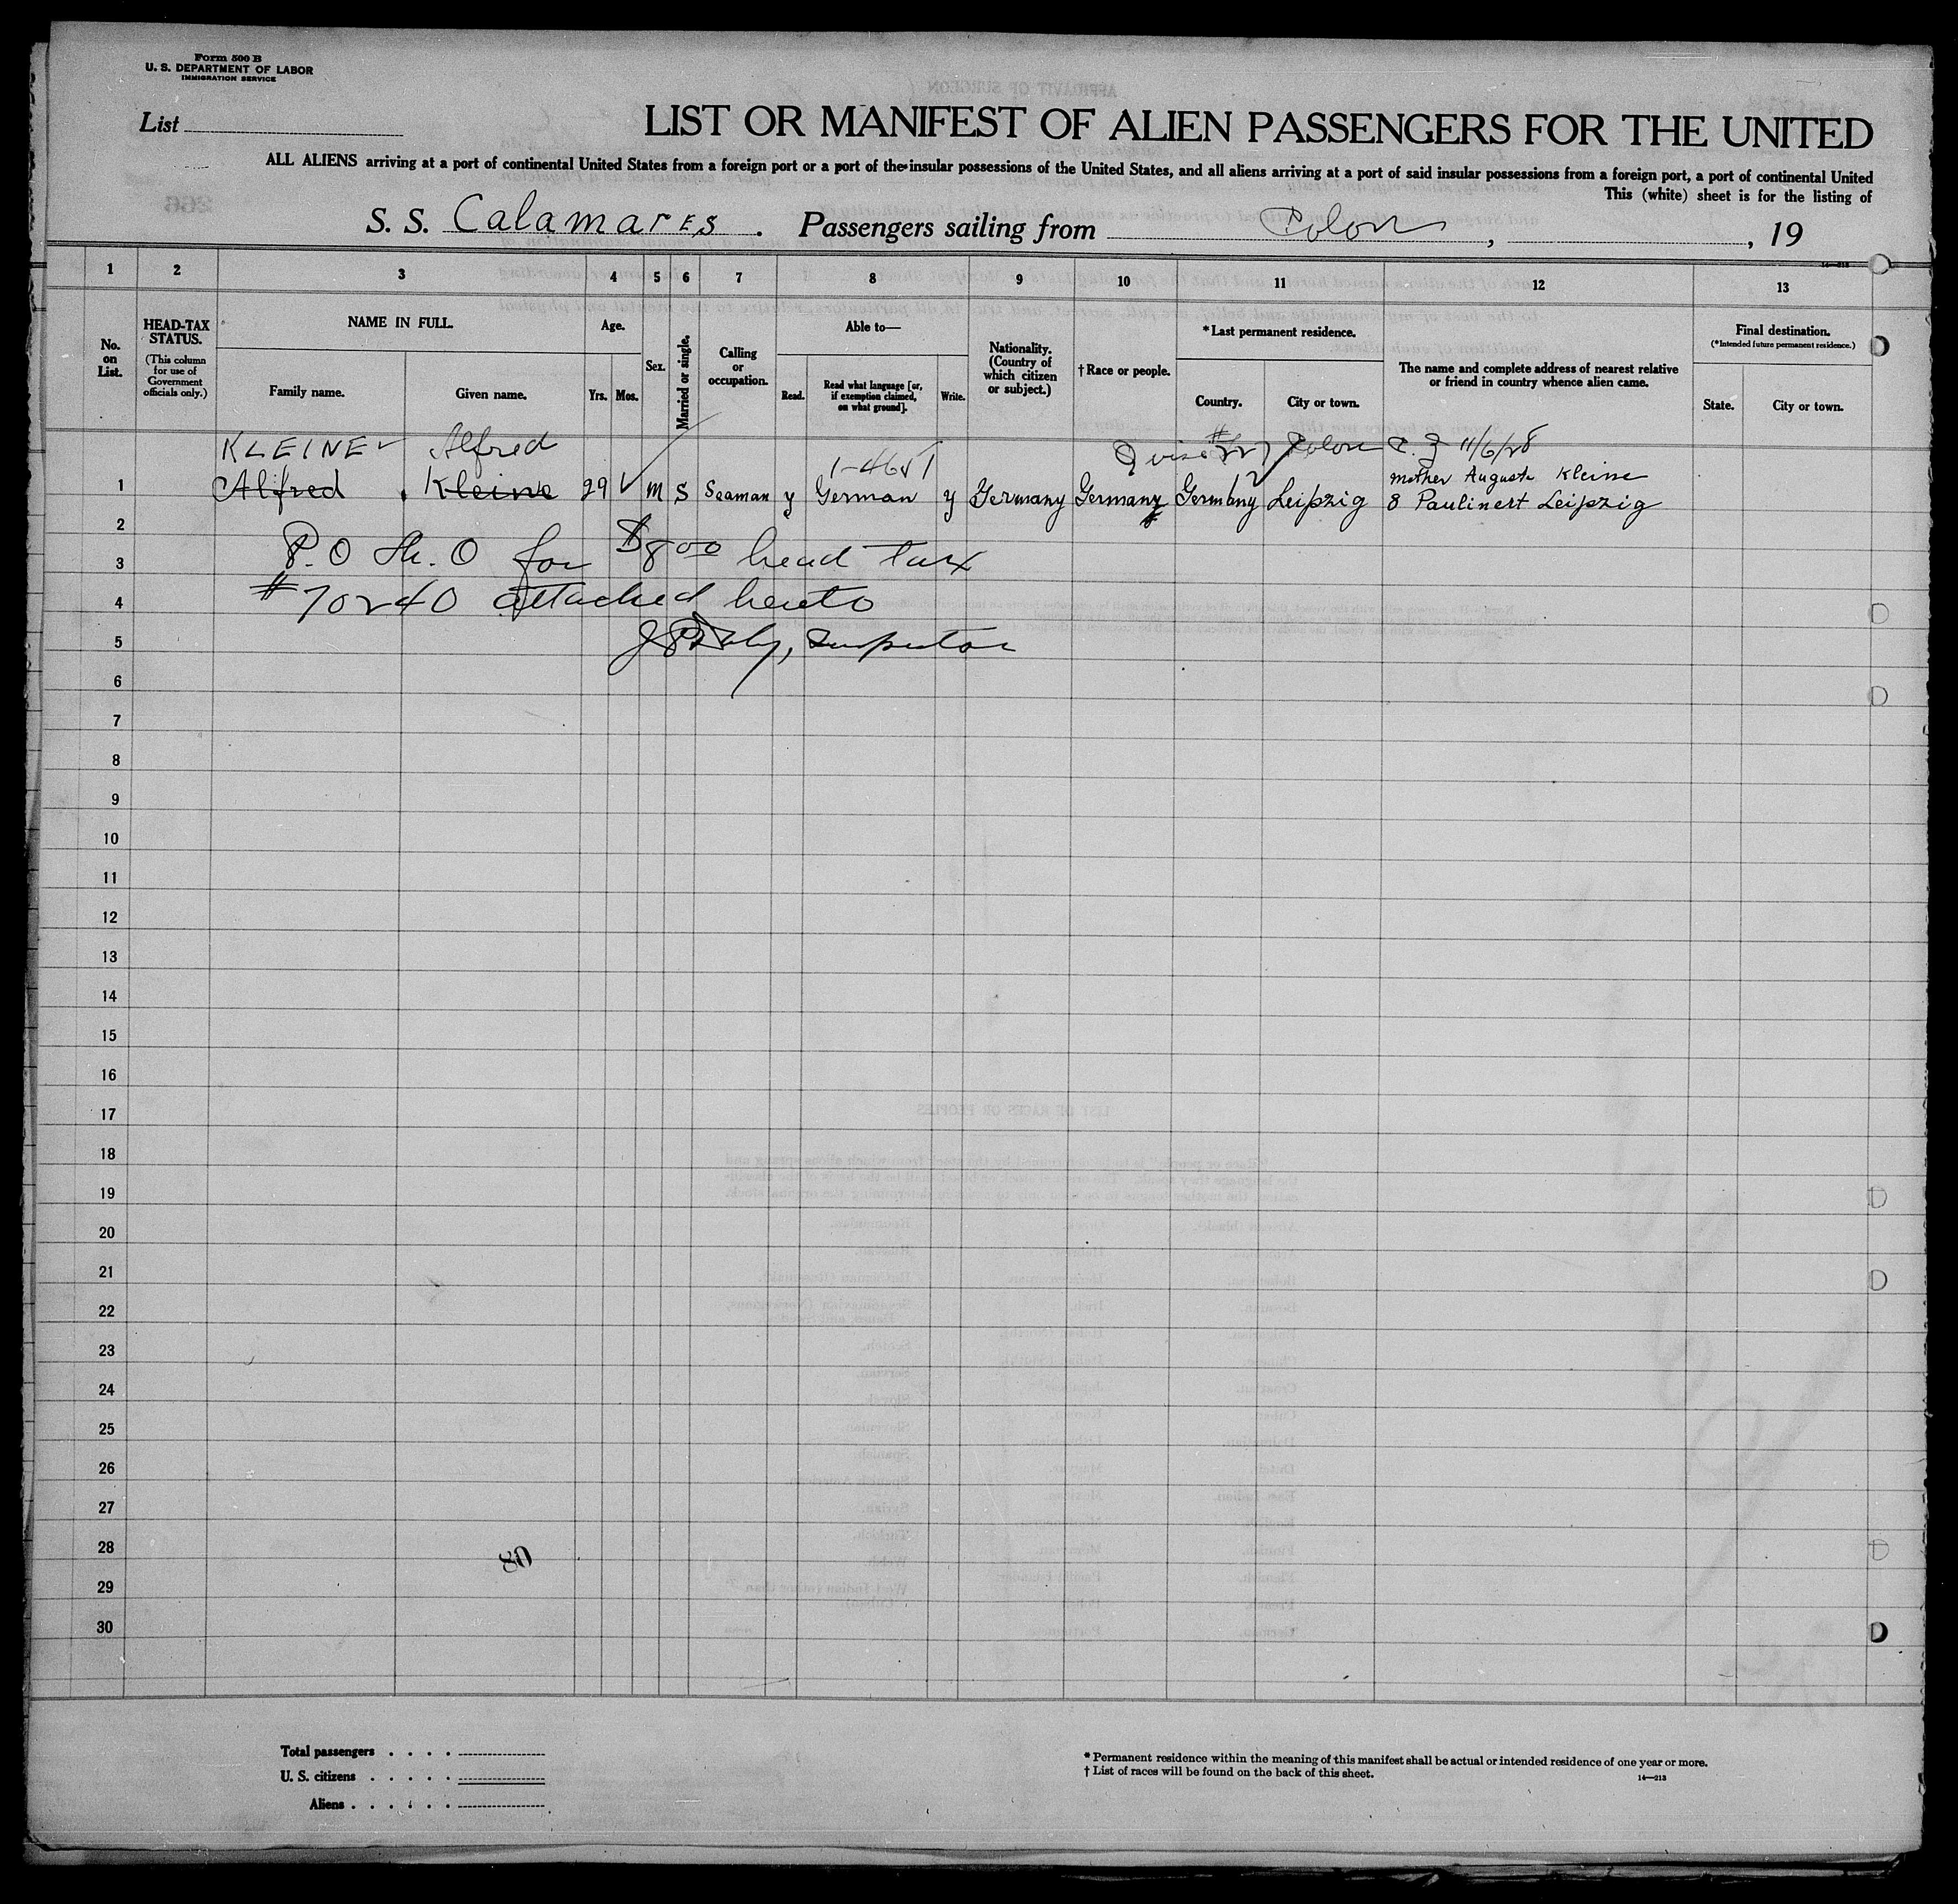 Form 500 B
U. S. DEPARTMENT OF LABOR
IMMIGRATION SERVICE
List
LIST OR MANIFEST OF ALIEN PASSENGERS FOR THE UNITED
ALL ALIENS arriving at a port of continental United States from a foreign port or a port of the insular possessions of the United States, and all aliens arriving at a port of said insular possessions from a foreign port, a port of continental United
This (white) sheet is for the listing of
266
S. S. Calamares . Passengers sailing from Colon , , 19
14—213
1 2 3 4 5 6 7 8 9 10 11 12 13
No. on List.
HEAD-TAX STATUS.
(This column for use of Government officials only.)
NAME IN FULL.
Family name.
Given name.
Age.
Yrs.
Mos.
Sex.
Married or single.
Calling or occupation.
Able to—
Read.
Read what language [or, if exemption claimed, on what ground].
Write.
Nationality. (Country of which citizen or subject.)
† Race or people.
*Last permanent residence.
Country.
City or town.
The name and complete address of nearest relative or friend in country whence alien came.
Final destination.
(*Intended future permanent residence.)
State.
City or town.
KLEINE Alfred
Colon C. Z 11/6/28
mother Auguste Kleine
1 Alfred Kleine 29 m S Seaman y German y Germany Germany Germany Leipzig 8 Paulinert Leipzig
2
P.O M. O for $8 00 head tax
3
#70240 attached hereto
4
Inspector
5
6
7
8
9
10
11
12
13
14
15
16
17
18
19
20
21
22
23
24
25
26
27
28
80
29
30
Total passengers . . . .
U. S. citizens . . . . .
Aliens . . . . . .
* Permanent residence within the meaning of this manifest shall be actual or intended residence of one year or more.
† List of races will be found on the back of this sheet.
14—213